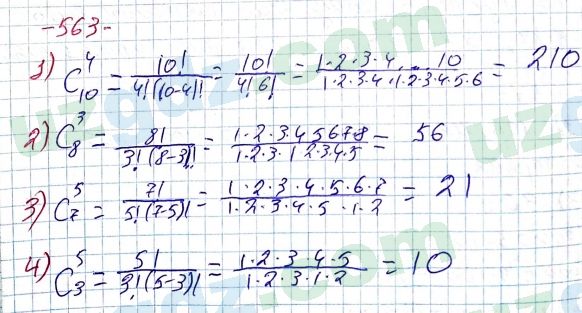 -563-
1) C₁₀⁴ = 10!/4!(10-4)! = 10!/4!6! = 1·2·3·4...10/1·2·3·4·1·2·3·4·5·6 = 210
2) C₈³ = 8!/3!(8-3)! = 1·2·3·4 5 6 7·8/1·2·3·1 2·3·4·5 = 56
3) C₇⁵ = 7!/5!(7-5)! = 1·2·3·4·5·6·7/1·2·3·4·5·1·2 = 21
4) C₃⁵ = 5!/3!(5-3)! = 1·2·3·4·5/1·2·3·1·2 = 10